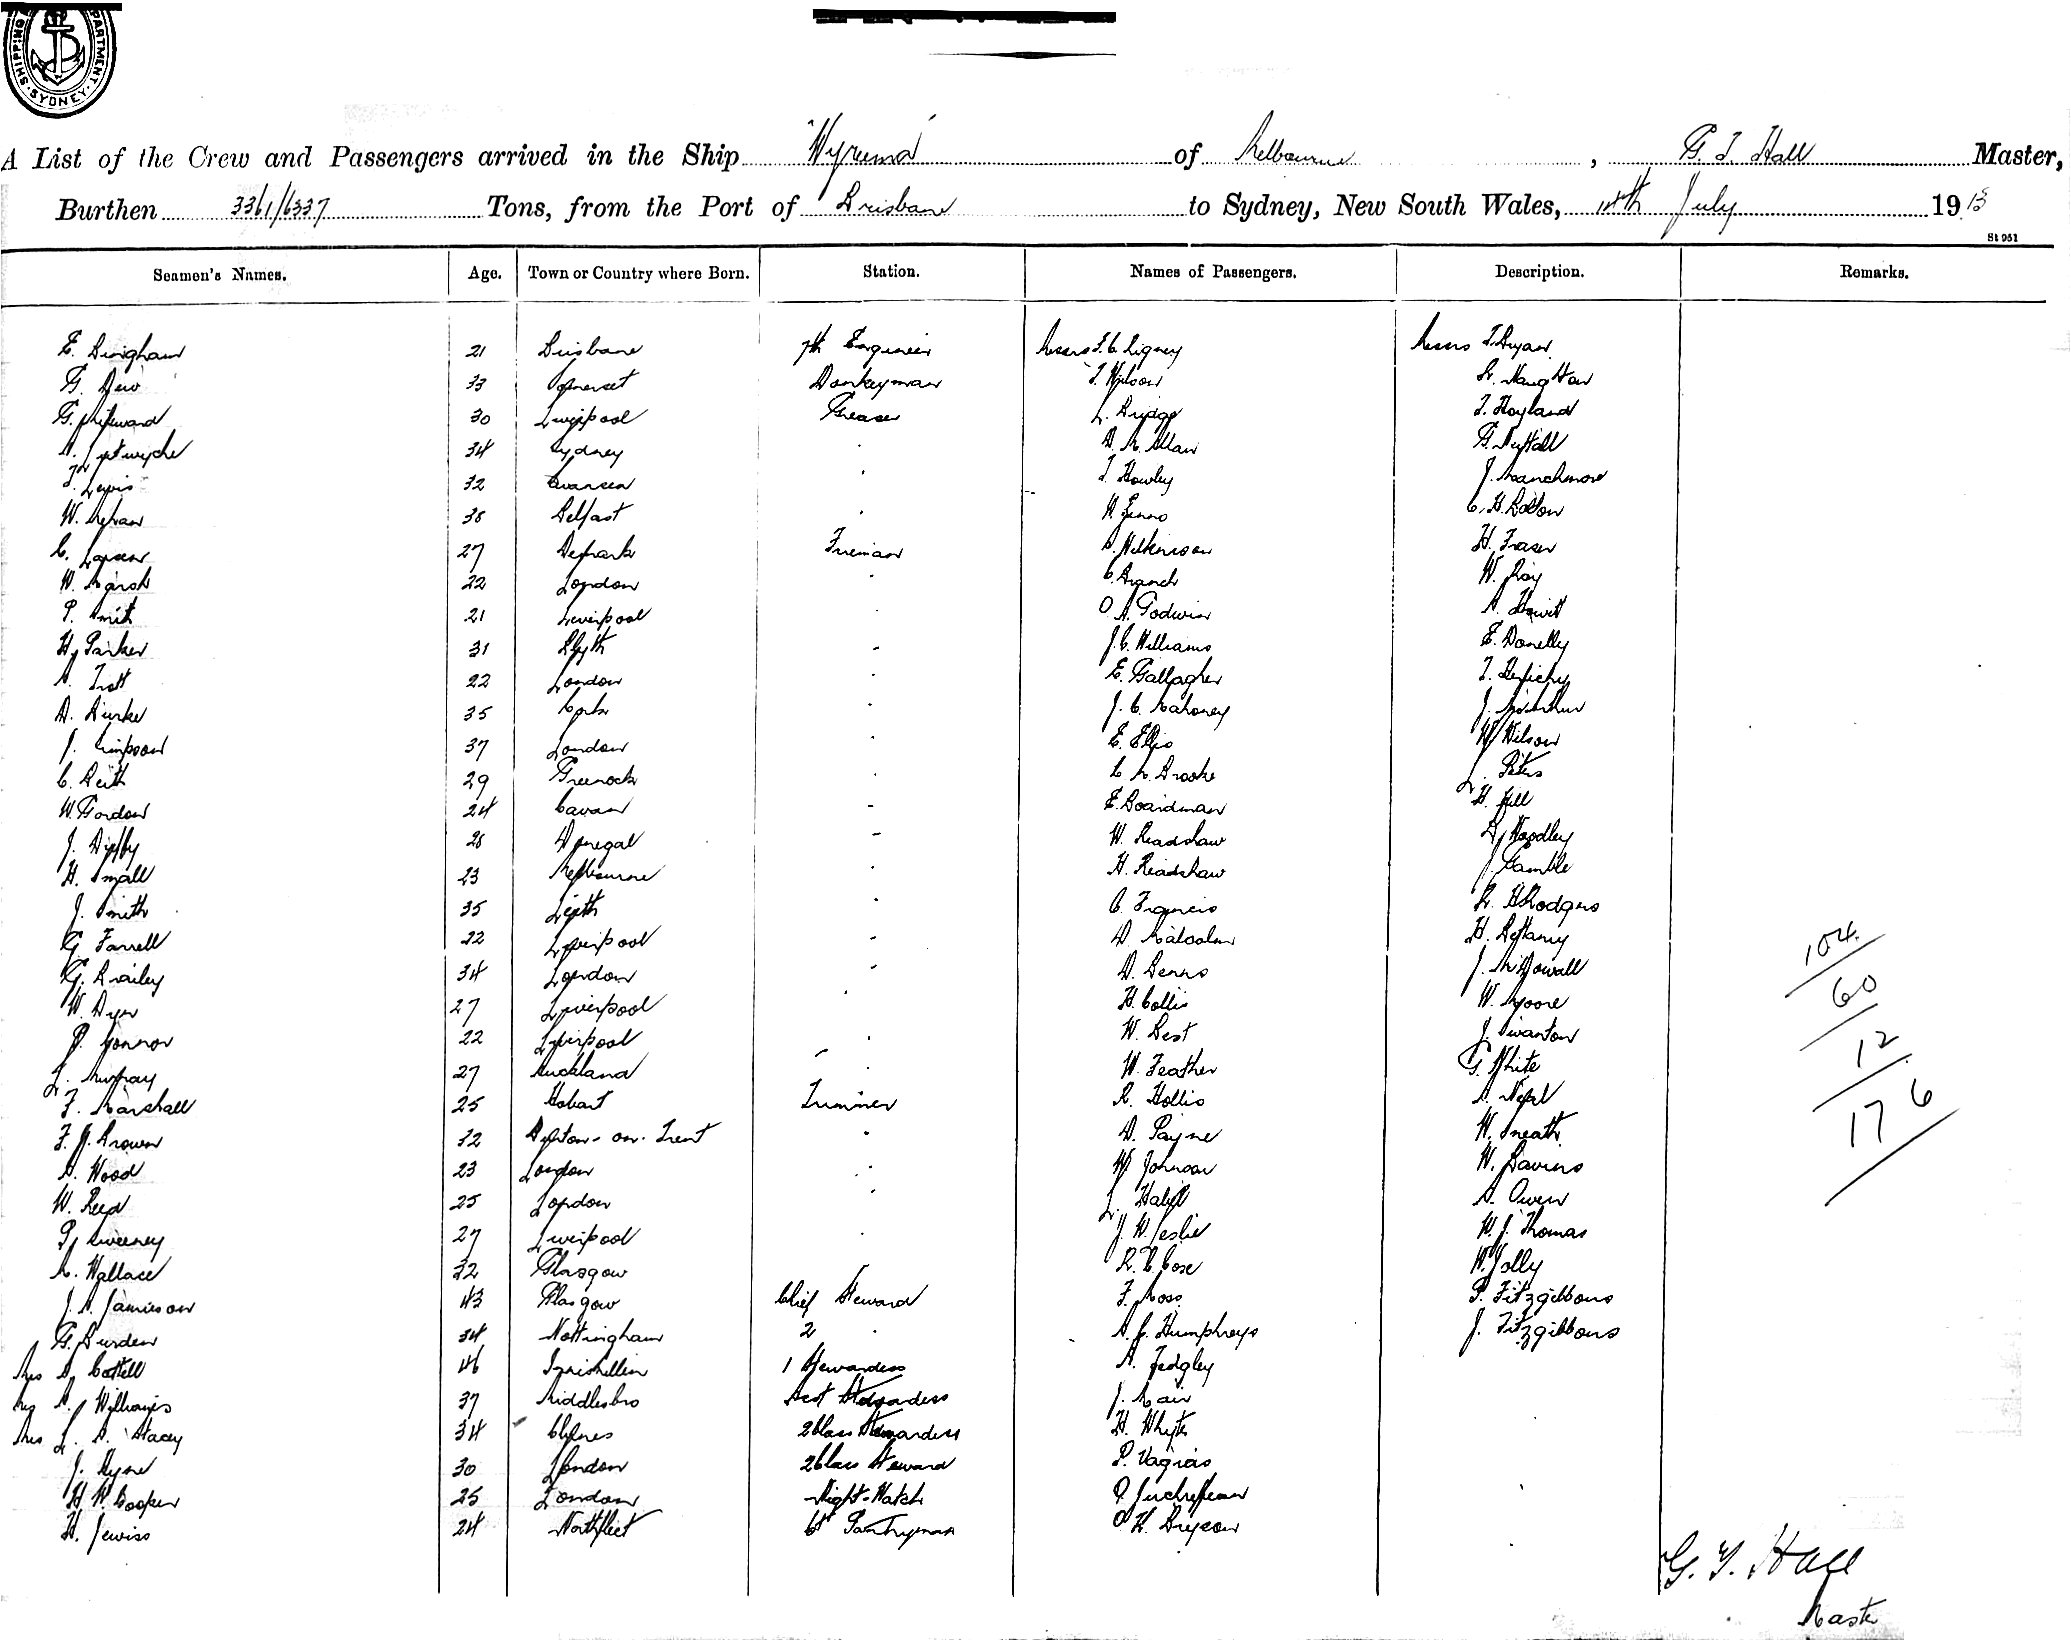 SHIPPING DEPARTMENT. SYDNEY.
A List of the Crew and Passengers arrived in the Ship "Wyreema" of Melbourne, G. T. Hall Master,
Burthen 3361/6337 Tons, from the Port of Brisbane to Sydney, New South Wales, July 1913
St 951
Seamen's Names. Age. Town or Country where Born. Station. Names of Passengers. Description. Remarks.
E. Bingham 21 Brisbane 7th Engineer Messrs F. C. Rigney Messrs T. Ryan
G. Dew 33 Somerset Donkeyman T. Wilson Naughton
G. 30 Liverpool Greaser L. Bridge T. Hoyland
34 Sydney A. M. Allan G. Nuttall
T. Lewis 32 Swansea T. Howley J.
W. 38 Belfast C. H. Bolton
C. Larsen 27 Denmark Fireman A. Wilkinson H. Fraser
W. Marsh 22 London C. Branch W. Ray
P. Smith 21 Liverpool A. Godwin A. Hewitt
H. Parker 31 Blyth J. C. Williams E. Donelly
A. Trott 22 London E. Gallagher T.
D. Burke 35 Cork J. C. Mahoney J. McArthur
J. Simpson 37 London E. Ellis W. Wilson
C. Beith 29 Greenock C. M. Brooke L. Peters
W. Gordon 24 Cavan E. Boardman H. Hill
J. Digby 28 Donegal W. Readshaw Woodley
H. Small 23 Melbourne H. Readshaw J. Gamble
J. Smith 35 Leith C. Francis R. H. Rodgers
G. Farrell 22 Liverpool D. Malcolm H. Bettany
G. Brailey 34 London D. Benns J. McDowall
104
W. Dyer 27 Liverpool H. Collis W. Moore
60
P. Connor 22 Liverpool W. Best J. Swanton
12
L. Murray 27 Auckland W. Feather G. White
F. Marshall 25 Hobart Trimmer R. Hollis A.
176
F. J. Brown 32 Burton-on-Trent D. Payne W. Sneath
A. Wood 23 London W. Johnson W.
W. Reed 25 London L. A. Owen
P. Sweeney 27 Liverpool J. W. Leslie W. J. Thomas
M. Wallace 32 Glasgow R. Cose W. Jolly
J. A. Jamieson 43 Glasgow Chief Steward F. Moss P. Fitzgibbons
G. Burden 34 Nottingham 2 A. J. Humphreys J. Fitzgibbons
Mrs A. Cottell 46 1 Stewardess A. Fedgley
Mrs A. Williams 37 Middlesbro Asst Stewardess J. Mair
Mrs L. A. Stacey 34 2 Class Stewardess H. Whyte
J. Hyne 30 London 2 Class Steward P. Vagias
H. W. Cooper 25 London Night-Watch
H. Jewiss 24 Northfleet Pantryman Bryson
G. T. Hall
Master